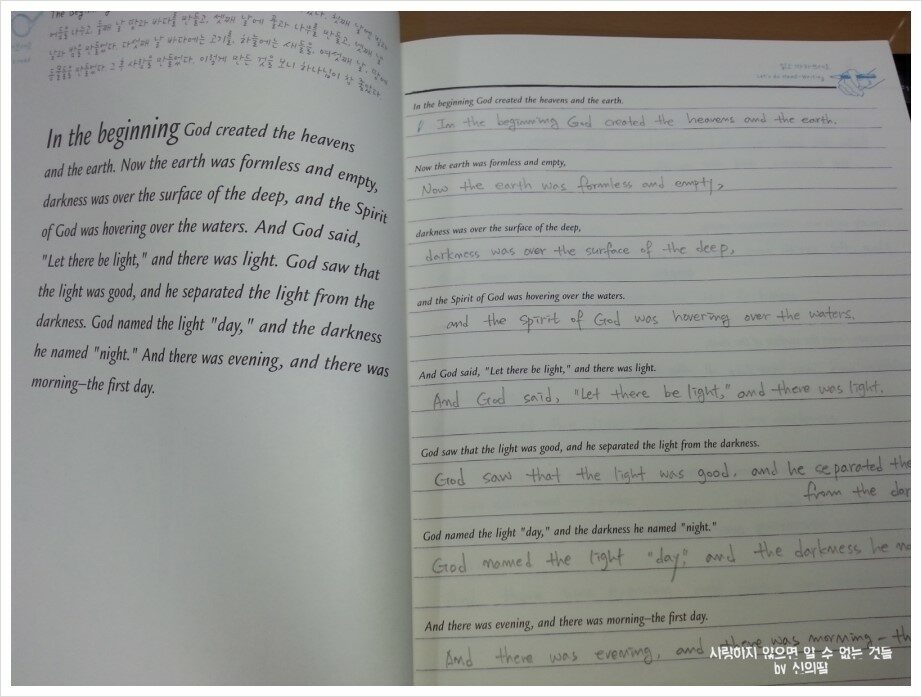 The beginning
어둠을 나누고, 둘째 날 땅과 바다를 만들고, 셋째 날에 풀과 나무를 만들고, 넷째 날
낮과 밤을 만들었다. 다섯째 날 바다에는 고기를, 하늘에는 새들을, 여섯째 날, 땅에
동물들을 만들었다. 그 후 사람을 만들었다. 이렇게 만든 것을 보니 하나님이 참 좋았다.
In the beginning God created the heavens
and the earth. Now the earth was formless and empty,
darkness was over the surface of the deep, and the Spirit
of God was hovering over the waters. And God said,
"Let there be light," and there was light. God saw that
the light was good, and he separated the light from the
darkness. God named the light "day," and the darkness
he named "night." And there was evening, and there was
morning—the first day.
Let's do Hand-Writing
In the beginning God created the heavens and the earth.
In the beginning God created the heavens and the earth.
Now the earth was formless and empty,
Now the earth was formless and empty,
darkness was over the surface of the deep,
darkness was over the surface of the deep,
and the Spirit of God was hovering over the waters.
and the spirit of God was hovering over the waters.
And God said, "Let there be light," and there was light.
And God said, "Let there be light," and there was light.
God saw that the light was good, and he separated the light from the darkness.
God saw that the light was good, and he separated the
from the dar
God named the light "day," and the darkness he named "night."
God named the light "day," and the darkness he na
And there was evening, and there was morning—the first day.
And there was evening, and there was morning - th
사랑하지 않으면 알 수 없는 것들
by 신의딸